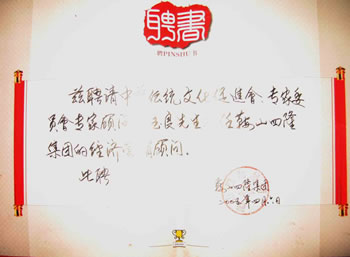 聘書
聘PINSHU书
兹聘请中 传统文化促進會、专家委
员會专家顾 良先生 任鞍山四隆
集团的经济 顾问。
此聘
鞍山四隆集团
年四月六日